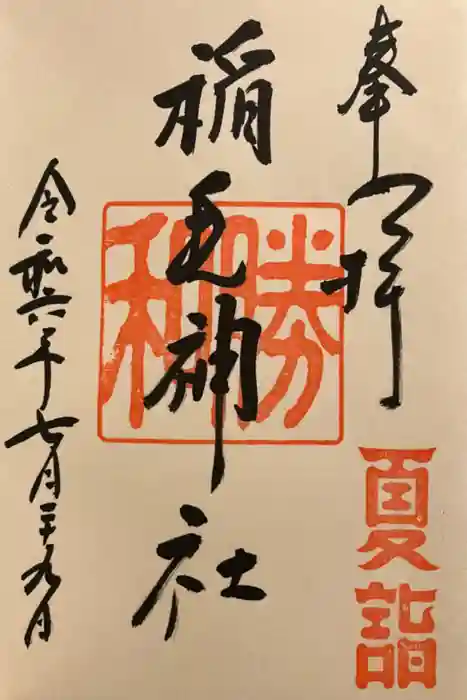 奉拝
夏詣
稲毛神社
勝利
令和六年七月二十九日